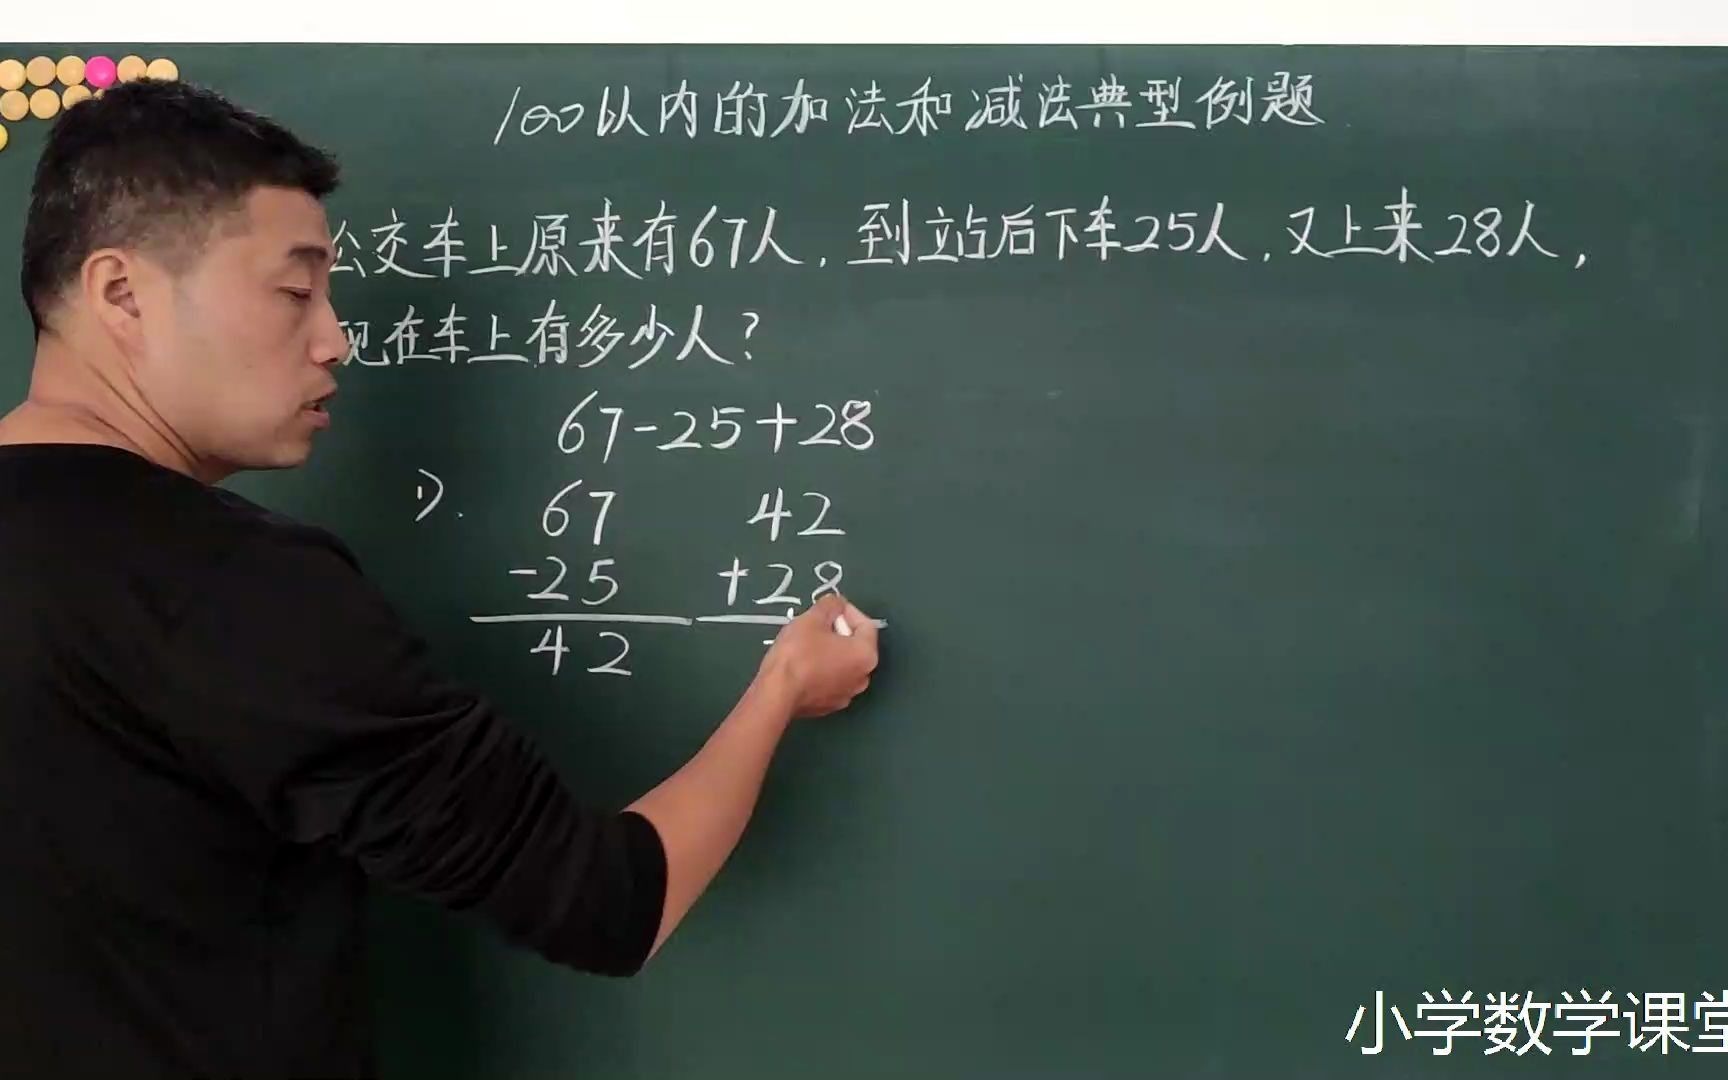 100以内的加法和减法典型例题
公交车上原来有67人，到站后下车25人，又上来28人，
现在车上有多少人？
67-25+28
1).
67 42
-25 +28
42
小学数学课堂